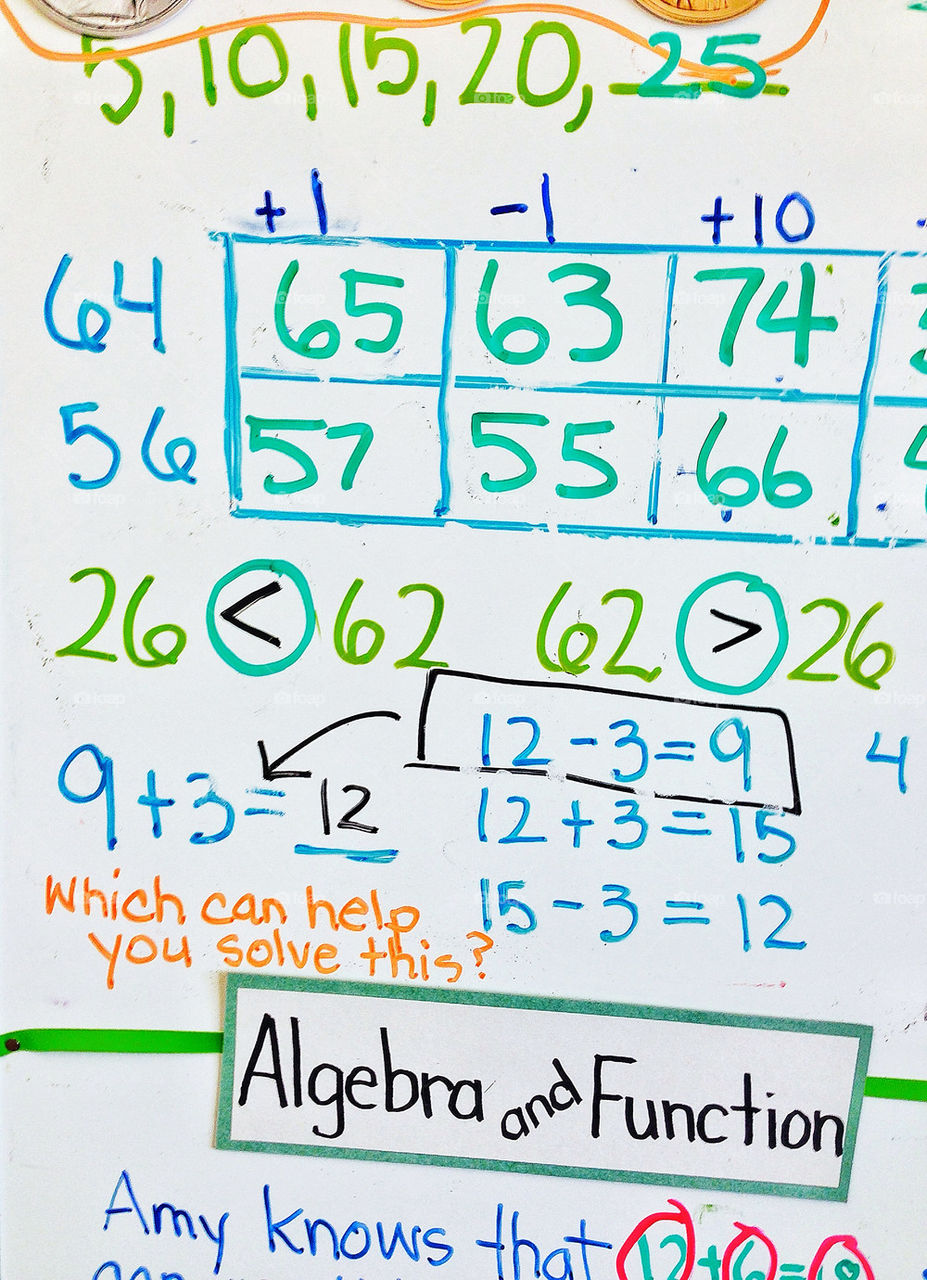 5, 10, 15, 20, 25
+1 -1 +10
64 65 63 74
56 57 55 66
26 < 62 62 > 26
12-3=9
9+3= 12
12+3=15
4
Which can help
you solve this?
15-3=12
Algebra and Function
Amy knows that 12+6=18